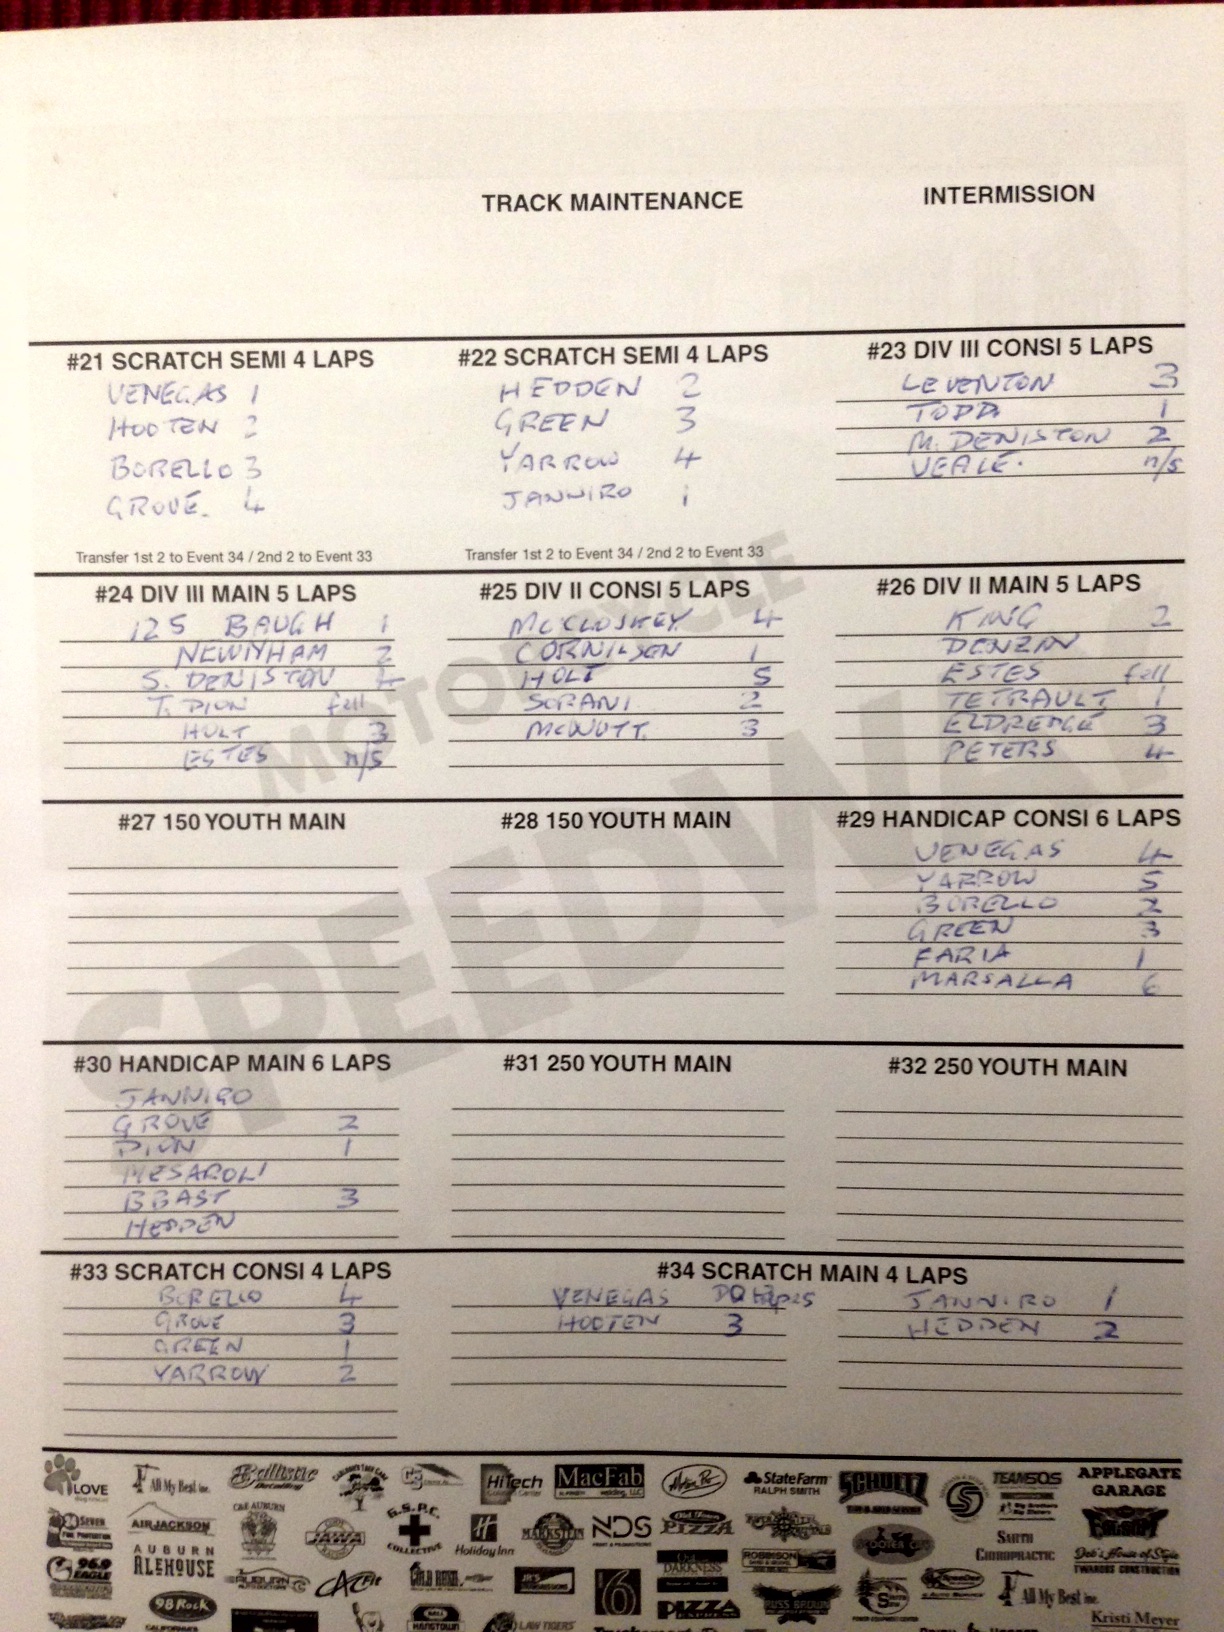 TRACK MAINTENANCE
INTERMISSION
#21 SCRATCH SEMI 4 LAPS
VENEGAS 1
HOOTEN 2
BORELLO 3
GROVE. 4
Transfer 1st 2 to Event 34 / 2nd 2 to Event 33
#22 SCRATCH SEMI 4 LAPS
HEDDEN 2
GREEN 3
YARROW 4
JANNIRO 1
Transfer 1st 2 to Event 34 / 2nd 2 to Event 33
#23 DIV III CONSI 5 LAPS
LEVENTON 3
TODD 1
M. DENISTON 2
VEALE. n/s
#24 DIV III MAIN 5 LAPS
125 BAUGH 1
NEWNHAM 2
S. DENISTON 4
T. DION fell
HOLT 3
ESTES n/s
#25 DIV II CONSI 5 LAPS
McCLOSKEY 4
CORNILSEN 1
HOLT 5
SORANI 2
McNUTT. 3
#26 DIV II MAIN 5 LAPS
KING 2
DENZIN
ESTES fell
TETRAULT 1
ELDREDGE 3
PETERS 4
MOTORCYCLE
SPEEDWAY
#27 150 YOUTH MAIN
#28 150 YOUTH MAIN
#29 HANDICAP CONSI 6 LAPS
VENEGAS 4
YARROW 5
BORELLO 2
GREEN 3
FARIA 1
MARSALLA 6
#30 HANDICAP MAIN 6 LAPS
JANNIRO
GROVE 2
DION 1
MESAROLI
B BAST 3
HEDDEN
#31 250 YOUTH MAIN
#32 250 YOUTH MAIN
#33 SCRATCH CONSI 4 LAPS
BORELLO 4
GROVE 3
GREEN 1
YARROW 2
#34 SCRATCH MAIN 4 LAPS
VENEGAS DQ
HOOTEN 3
JANNIRO 1
HEDDEN 2
LOVE
All My Best inc.
Ballistic
HiTech
MacFab
StateFarm
RALPH SMITH
SCHULTZ
TEAMSOS
APPLEGATE
GARAGE
AIRJACKSON
C&E AUBURN
JAWA
G.S.P.C.
COLLECTIVE
Holiday Inn
MARKSTEIN
NDS
PIZZA
AUBURN
ALEHOUSE
SARTH
CHIROPRACTIC
Deb's House of Style
96.9
EAGLE
GOLD RUSH
DARKNESS
ROBINSON
98 Rock
6
PIZZA
RUSS BROWN
All My Best inc.
HANGTOWN
LAW TIGERS
Kristi Meyer